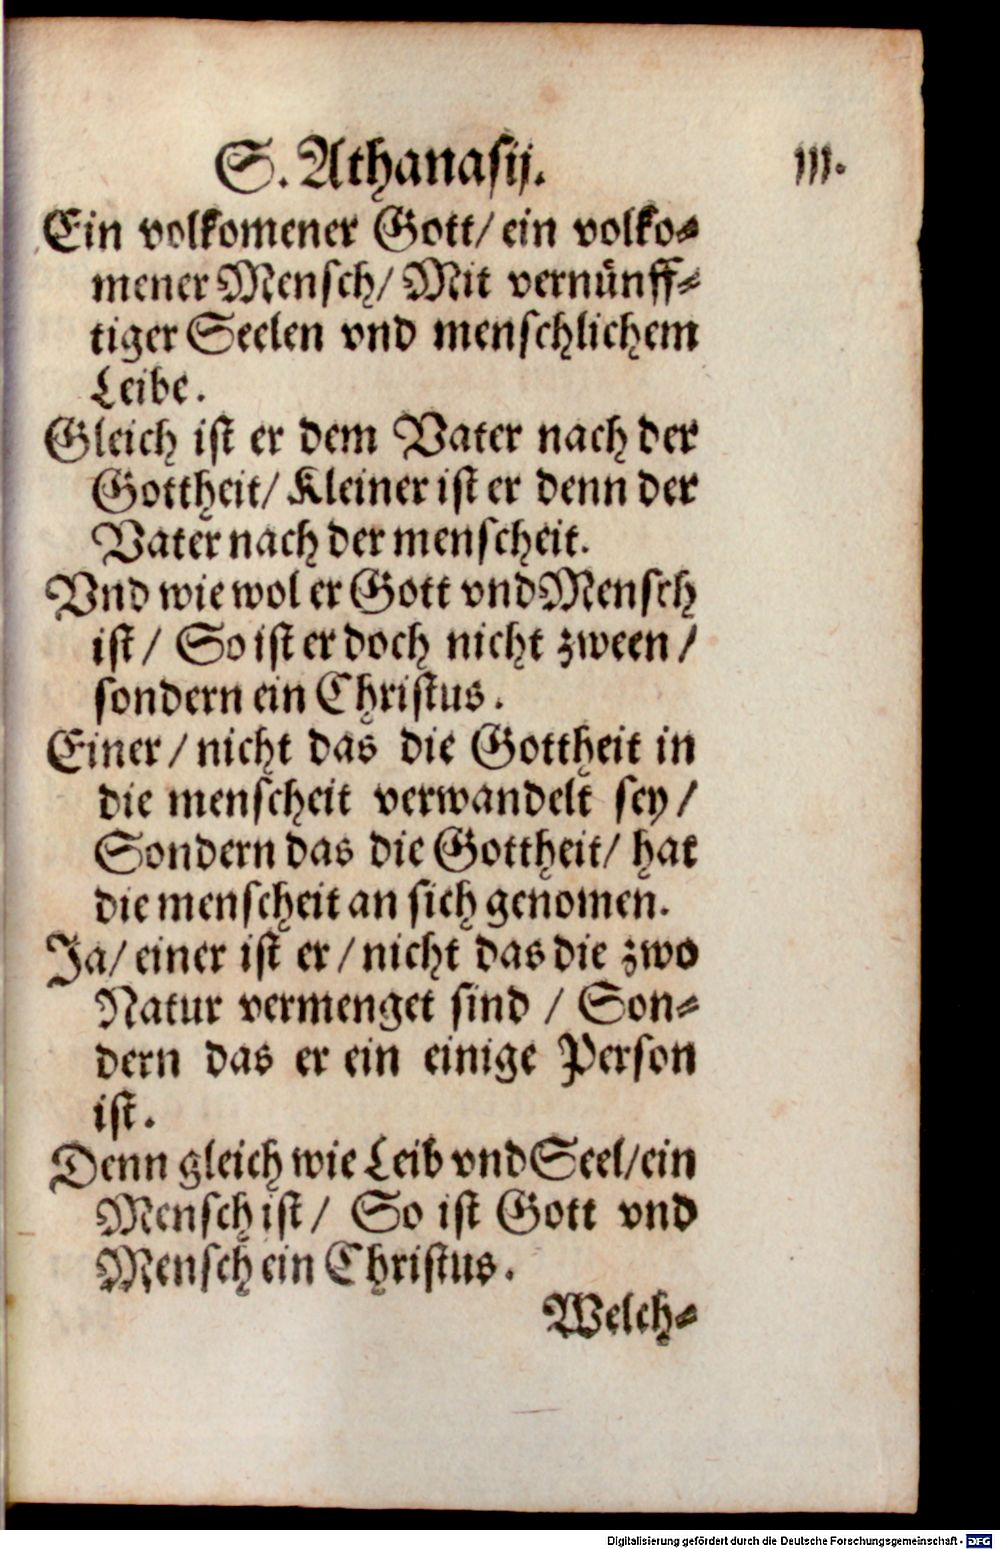 S. Athanasij. III.
Ein volkomener Gott/ ein volko-
mener Mensch/ Mit vernünff-
tiger Seelen vnd menschlichem
Leibe.
Gleich ist er dem Vater nach der
Gottheit/ Kleiner ist er denn der
Vater nach der menscheit.
Vnd wie wol er Gott vnd Mensch
ist/ So ist er doch nicht zween/
sondern ein Christus.
Einer/ nicht das die Gottheit in
die menscheit verwandelt sey/
Sondern das die Gottheit/ hat
die menscheit an sich genomen.
Ja/ einer ist er/ nicht das die zwo
Natur vermenget sind/ Son-
dern das er ein einige Person
ist.
Denn gleich wie Leib vnd Seel/ ein
Mensch ist/ So ist Gott vnd
Mensch ein Christus.
Welch-
Digitalisierung gefördert durch die Deutsche Forschungsgemeinschaft - DFG